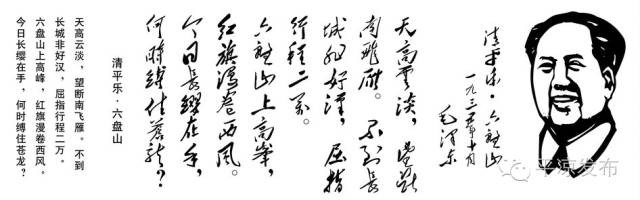 清平乐·六盘山
一九三五年十月
毛泽东
天高雲淡,望斷
南飛雁。不到長
城非好漢,屈指
行程二万。
六盘山上高峰,
红旗漫卷西风。
今日長纓在手,
何時縛住蒼龍?
清平乐·六盘山
天高云淡,望断南飞雁。不到
长城非好汉,屈指行程二万。
六盘山上高峰,红旗漫卷西风。
今日长缨在手,何时缚住苍龙?
平凉发布